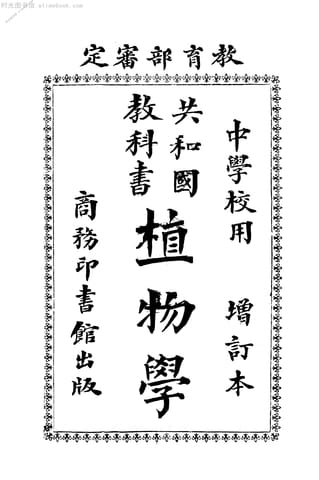 时光图书馆 etimebook.com
教育部審定
中學校用 增訂本
共和國
教科書
植物學
商務印書館出版